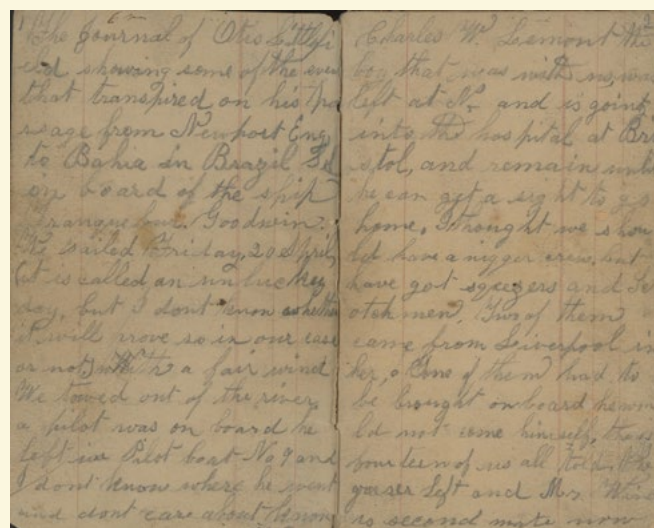 The Journal of Otis Littlefi
eld showing some of the even
that transpired on his pas
sage from Newport Eng.
to Bahia in Brazil
on board of the ship
Goodwin.
We sailed Friday, 20 April,
(it is called an unlucky
day, but I dont know whether
it will prove so in our case
or not) with a fair wind
We towed out of the river
a pilot was on board he
left in Pilot boat No 9 and
I dont know where he went
and dont care about know
2
Charles W. Lemont the
boy that was with us, was
left at N. and is going
into the hospital at Bri
stol, and remain until
he can get a right to go
home. I thought we shou
ld have a nigger crew, but
have got squeezers and Sc
otchmen. Two of them
came from Liverpool in
her, One of them had to
be brought on board he wou
ld not come himself,
fourteen of us all told, the
left and Mr.
is second mate now